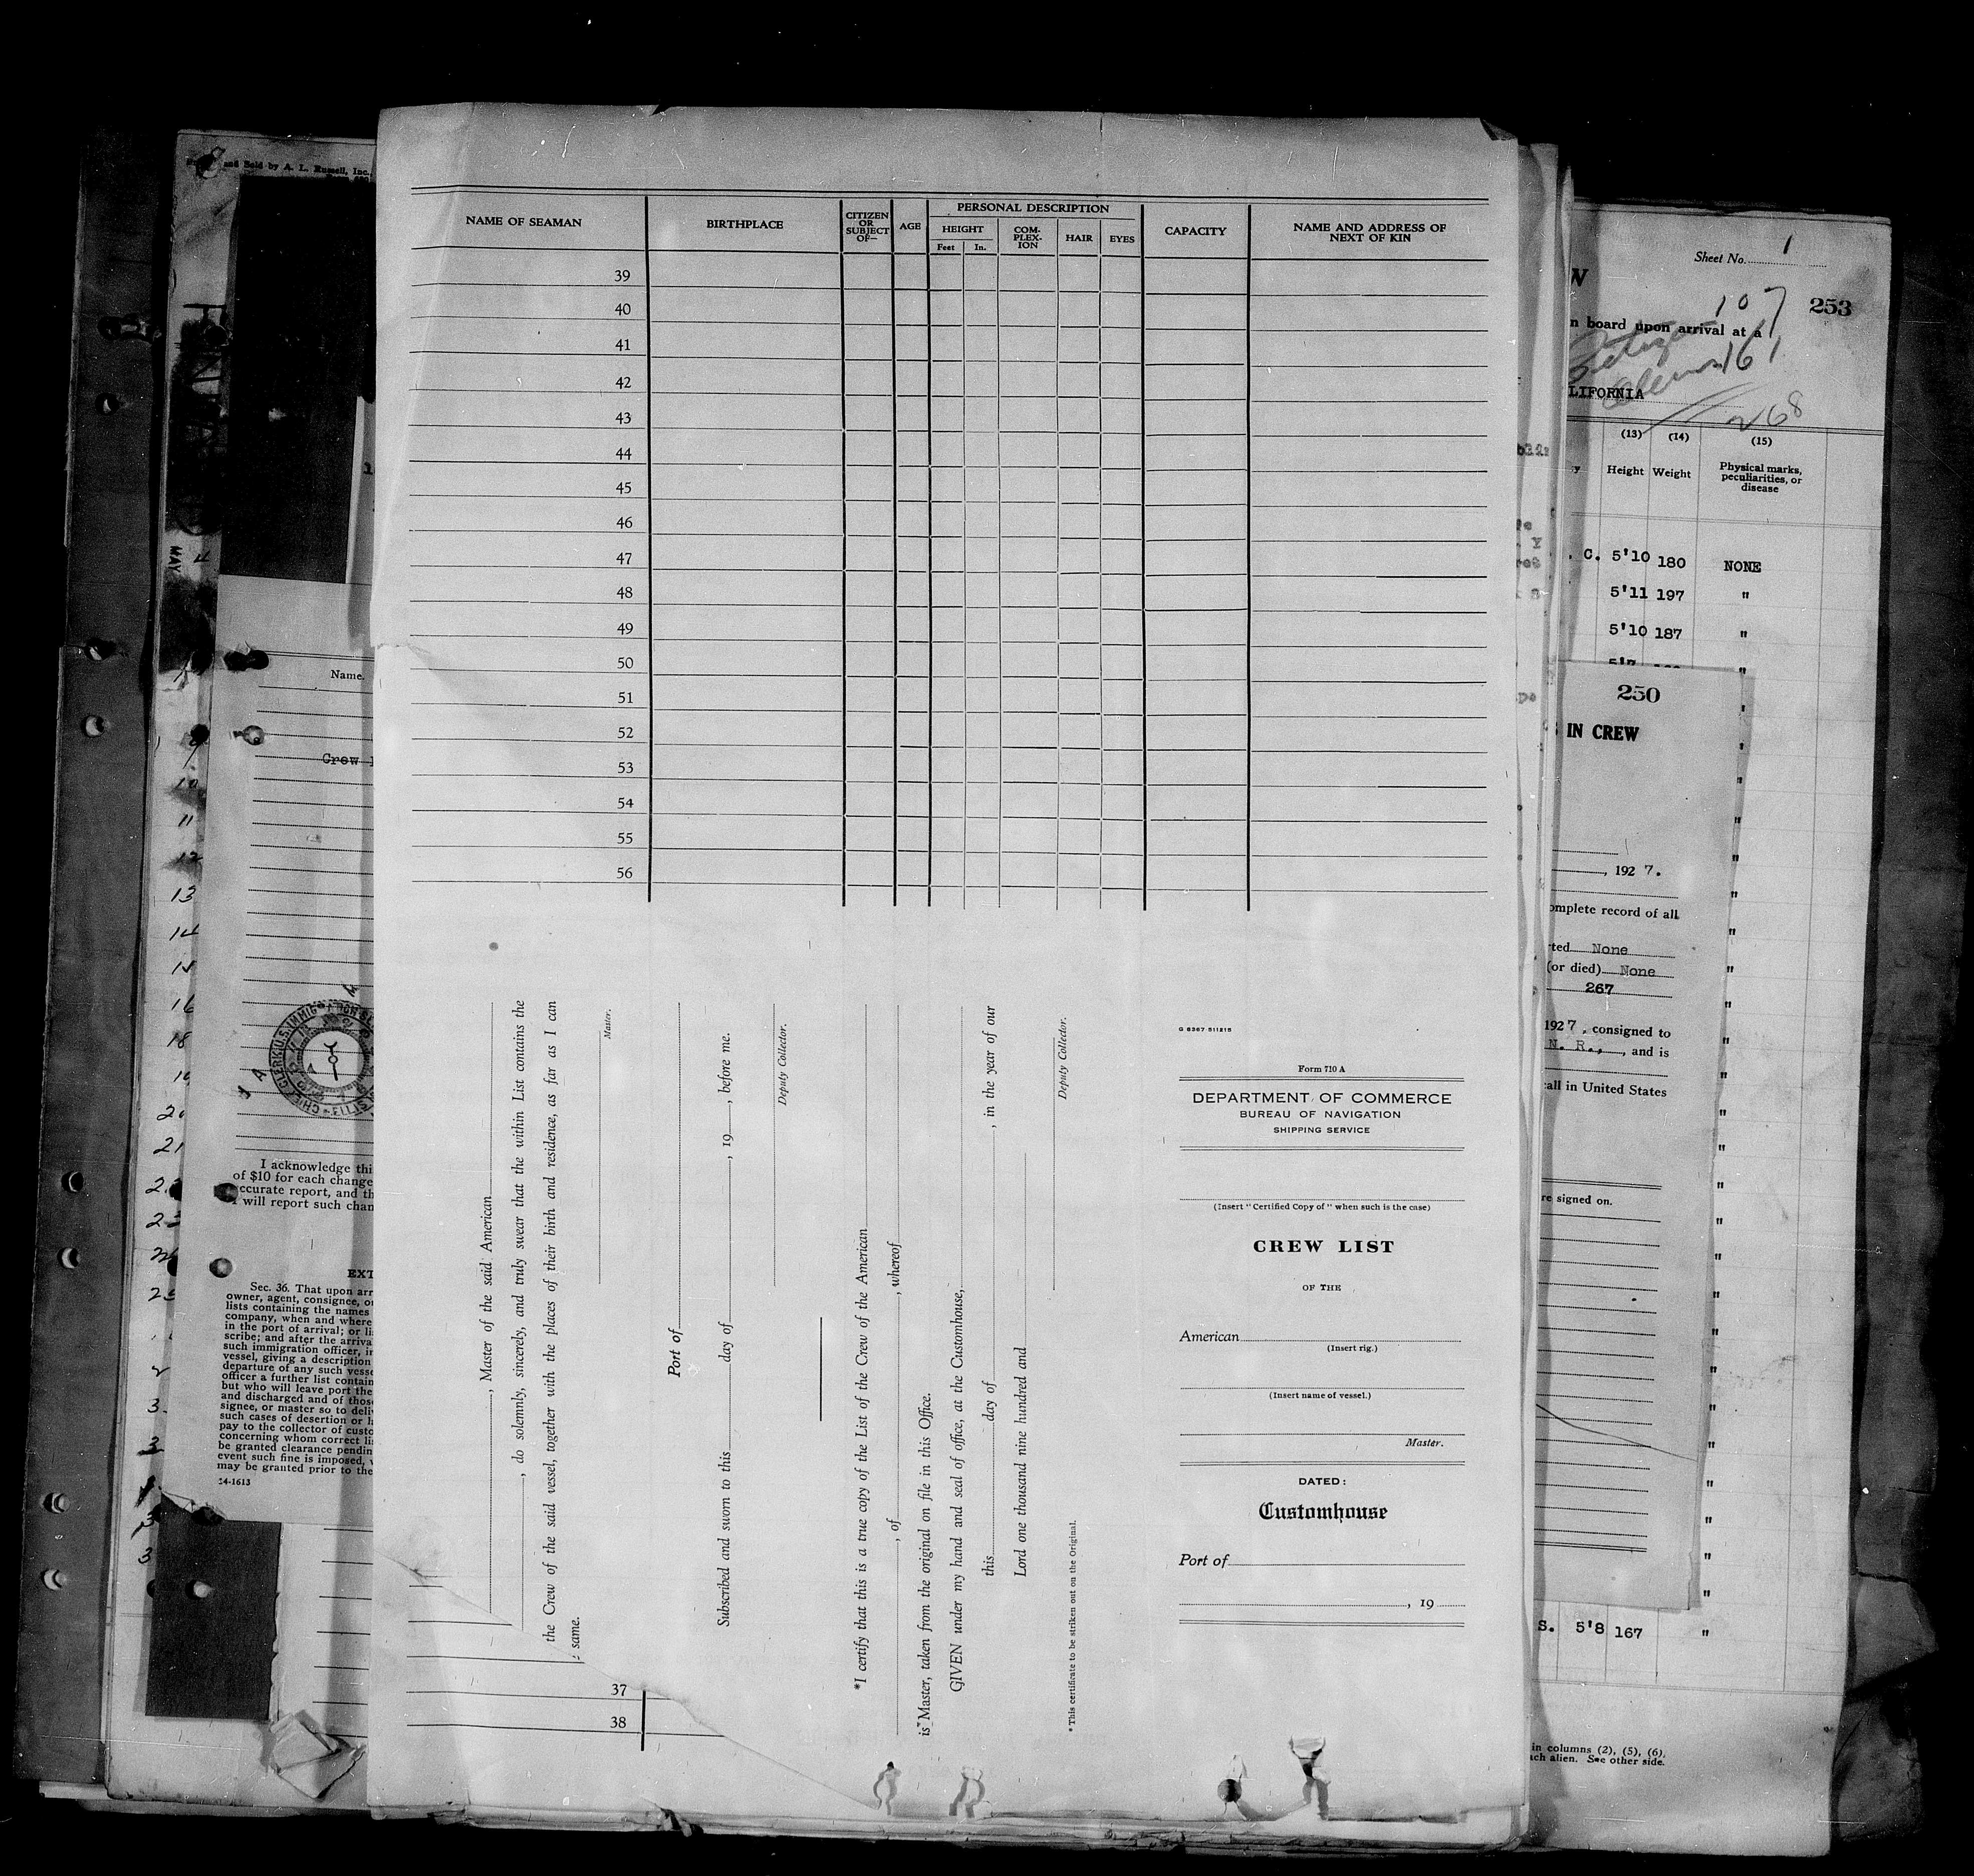 and Sold by A. L. Russell, Inc.,
NAME OF SEAMAN
BIRTHPLACE
CITIZEN OR SUBJECT OF—
AGE
PERSONAL DESCRIPTION
HEIGHT
Feet In.
COM-PLEX-ION
HAIR
EYES
CAPACITY
NAME AND ADDRESS OF NEXT OF KIN
39
40
41
42
43
44
45
46
47
48
49
50
51
52
53
54
55
56
37
38
Master of the said American
, do solemnly, sincerely, and truly swear that the within List contains the
the Crew of the said vessel, together with the places of their birth and residence, as far as I can
same.
Master.
Port of
Subscribed and sworn to this day of , 19 , before me.
Deputy Collector.
*I certify that this is a true copy of the List of the Crew of the American
, of , whereof
is Master, taken from the original on file in this Office.
GIVEN under my hand and seal of office, at the Customhouse,
this day of , in the year of our
Lord one thousand nine hundred and
Deputy Collector.
* This certificate to be striken out on the Original.
Form 710 A
DEPARTMENT OF COMMERCE
BUREAU OF NAVIGATION
SHIPPING SERVICE
(Insert "Certified Copy of" when such is the case)
CREW LIST
OF THE
American
(Insert rig.)
(Insert name of vessel.)
Master.
DATED:
Customhouse
Port of
, 19
MAY
Name.
Crew
13
14
15
16
18
21
I acknowledge thi
of $10 for each change
ccurate report, and th
I will report such chan
EXT
Sec. 36. That upon arr
owner, agent, consignee, o
lists containing the names
company, when and where
in the port of arrival; or li
scribe; and after the arriva
such immigration officer, i
vessel, giving a description
departure of any such vesse
officer a further list contain
but who will leave port the
and discharged and of those
signee, or master so to deli
such cases of desertion or l
pay to the collector of custo
concerning whom correct li
be granted clearance pendin
event such fine is imposed,
may be granted prior to the
14-1613
Sheet No. 1
107
253
n board upon arrival at a
161
LIFORNIA
268
(13) (14) (15)
Height Weight Physical marks, peculiarities, or disease
C. 5'10 180 NONE
5'11 197 "
5'10 187 "
250
IN CREW
, 1927.
omplete record of all
rted None
(or died) None
267
1927, consigned to
N. R., , and is
call in United States
re signed on.
S. 5'8 167 "
in columns (2), (5), (6),
ach alien. See other side.